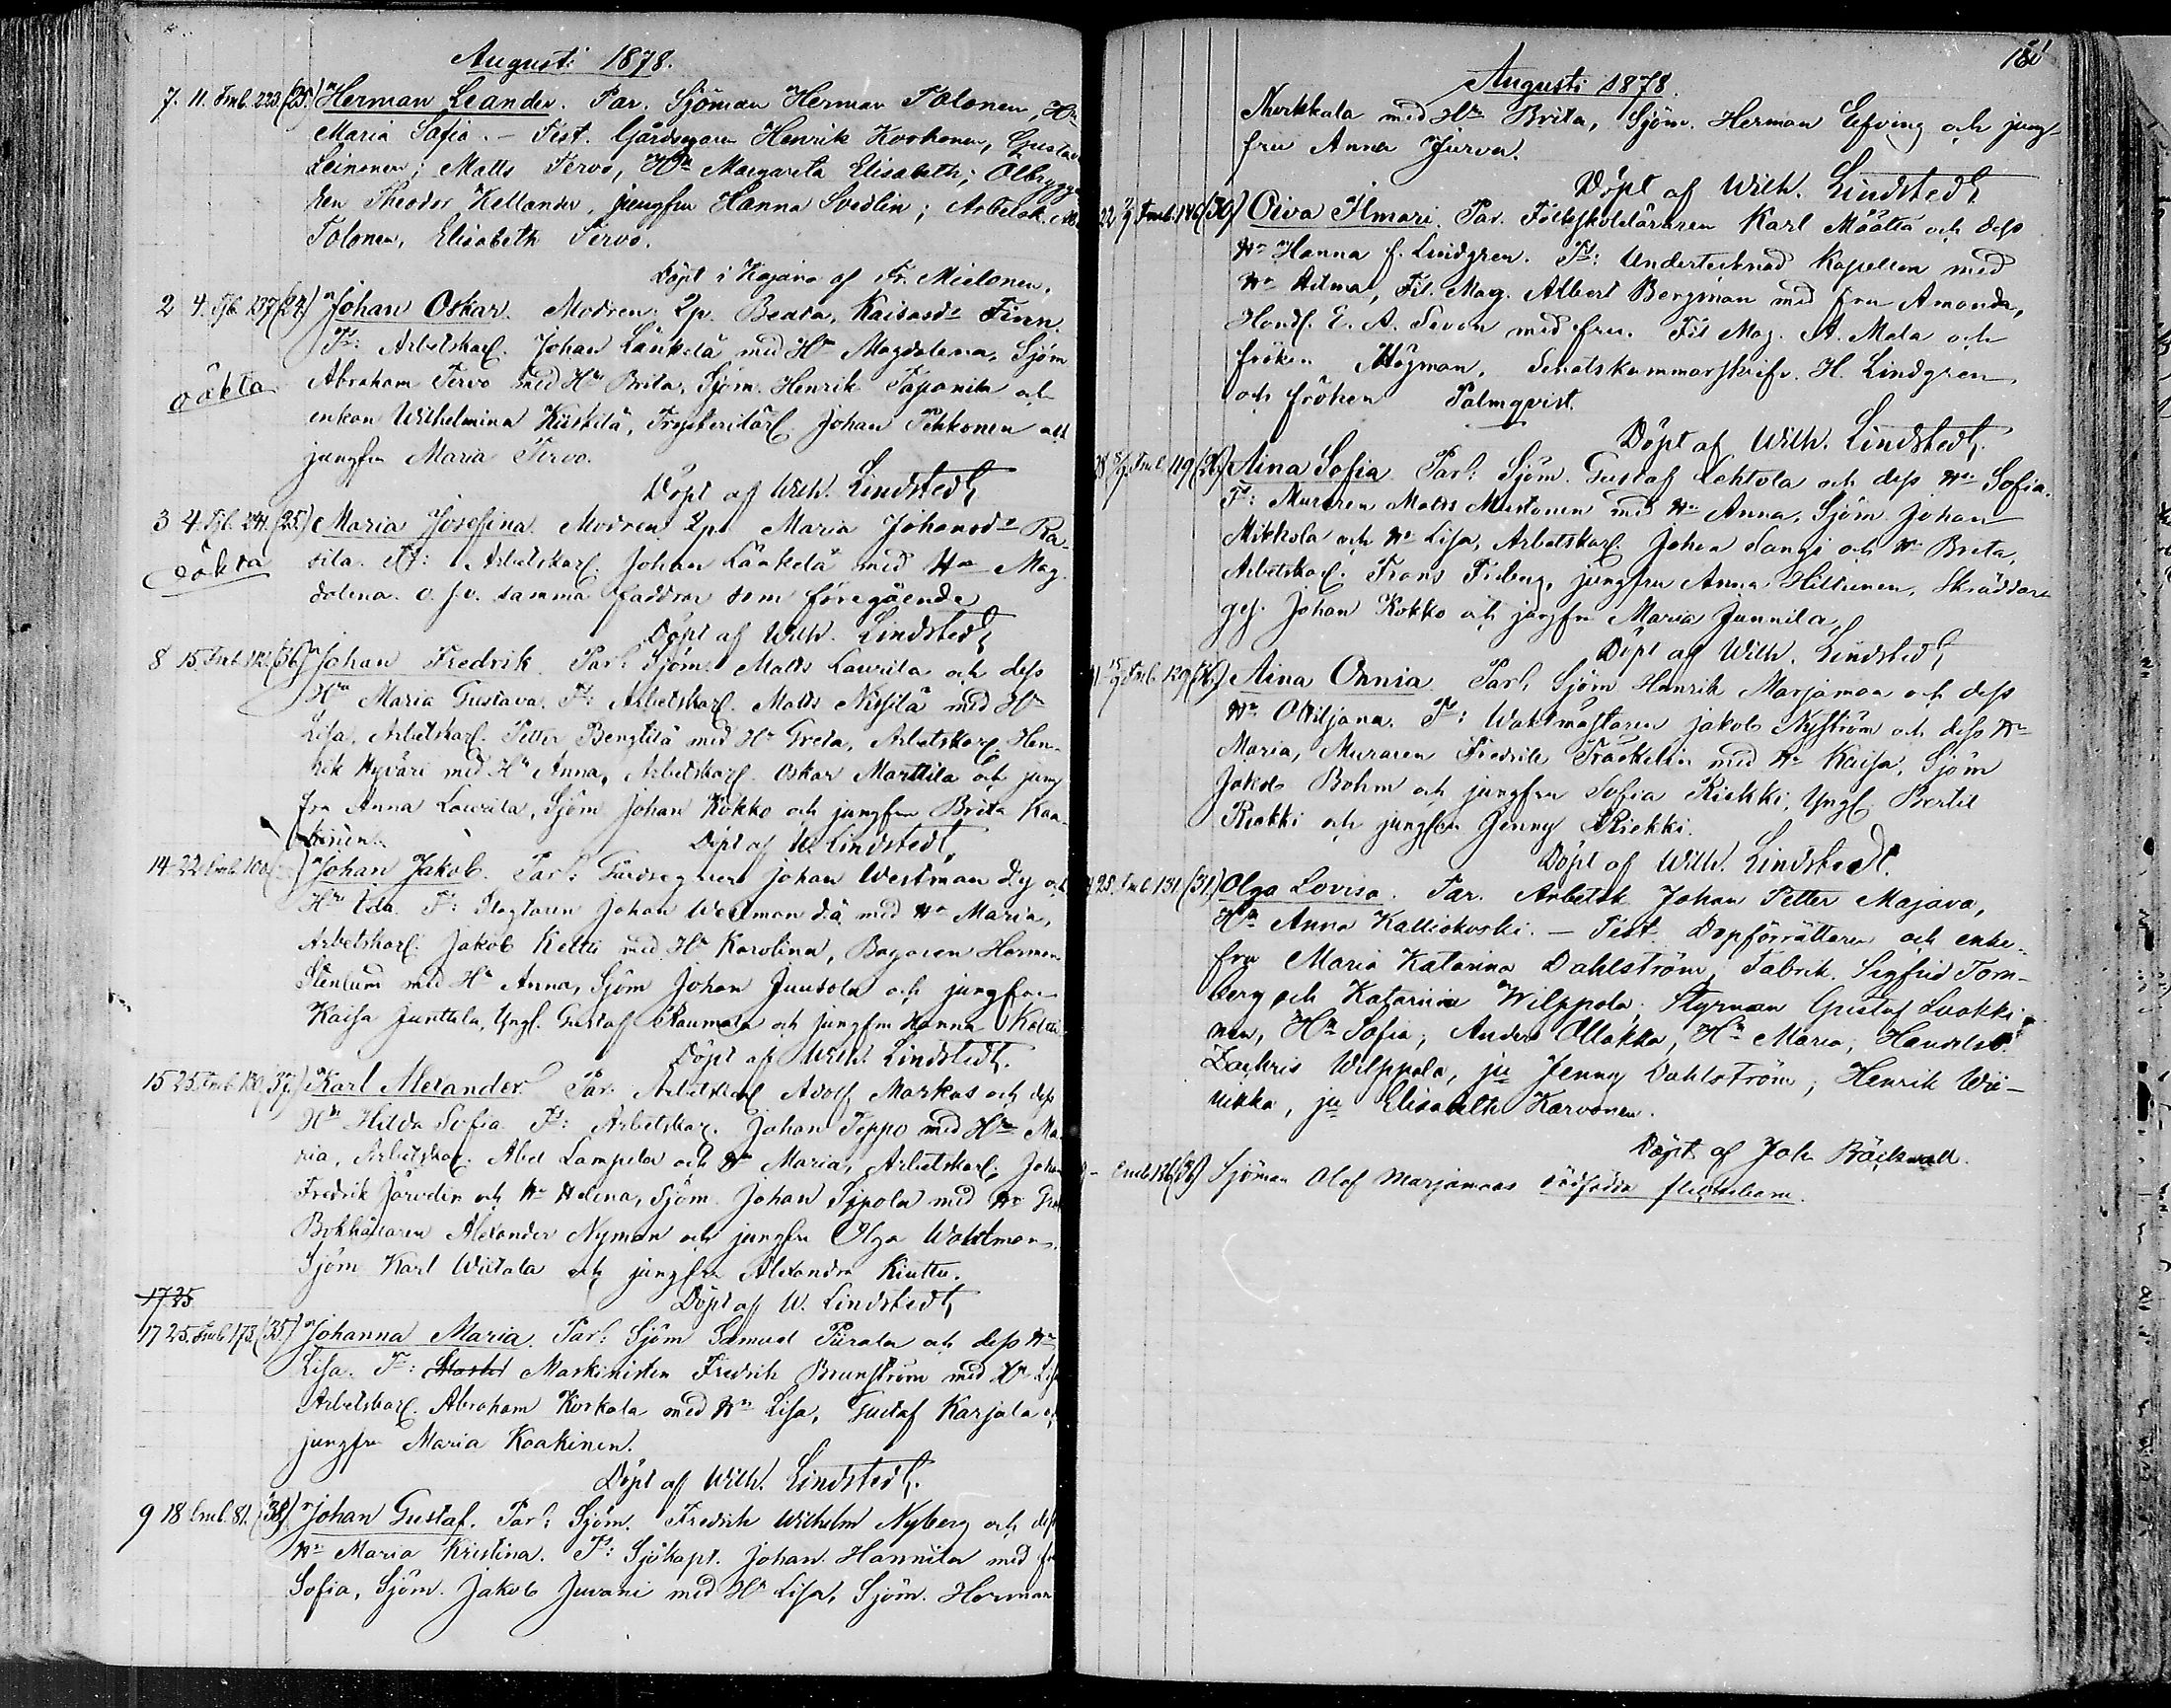 Augusti 1878.
7. 11. Smb. 223. (25.) Herman Leander. Par. Sjöman Herman Tolonen, Hu
Maria Sofia. – Test. Gårdsegaren Henrik Korhonen, Gustava
Leinonen; Matts Tervo, Hu Margareta Elisabeth; Ölbrygga-
ren Theodor Kellander, jungfru Hanna Svedlin; Arbetsk.
Tolonen, Elisabeth Tervo.
Döpt i Kajana af Fr. Mielonen.
2 4. 137 (24.) Johan Oskar. Modren: Lp. Beata Kaisasdr Finn.
Ts: Arbetskarl. Johan Länkelä med Hu Magdalena, Sjöm
oäkta Abraham Tervo med Hu Brita, Sjöm. Henrik Taponila och
enkan Wilhelmina Kiiskilä, Johan Pehkonen och
jungfru Maria Tervo.
Döpt af Wilh. Lindstedt
3 4 241. (25.) Maria Josefina. Modren Lp. Maria Johansdr Ra-
oäkta sila. Ts: Arbetskarl. Johan Länkelä med Hu Mag-
dalena. o. s. v. samma faddrar som föregående
Döpt af Wilh. Lindstedt
8 15. Smb. 141. (36.) Johan Fredrik. Par: Sjöm. Matts Laurila och dess
Hu Maria Gustava. Ts: Arbetskarl. Matts Nissilä med Hu
Lisa, Arbetskarl. Petter Bengtilä med Hu Greta, Arbetskarl. Hen-
rik Hyväri med Hu Anna, Arbetskarl. Oskar Marttila och jung
fru Anna Laurila, Sjöm Johan Kokko och jungfru Brita Kaa-
kinen. Döpt af W. Lindstedt,
14 22 Smb. 100 Johan Jakob. Par: Gårdsegaren Johan Westman d.y och
Hu Ida. Ts: Slagtaren Johan Westman d.ä med Hu Maria,
Arbetskarl. Jakob Keltti med Hu Karolina, Bagaren Herman
Stenlund med Hu Anna, Sjöm Johan Juusola och jungfru
Kaisa Junttila, Yngl. Gustaf Raumala och jungfru Hanna
Döpt af Wilh. Lindstedt.
15 25. Smb. 180. (37.) Karl Alexander. Par: Arbetskarl Adolf Markus och dess
Hu Hilda Sofia. Ts: Arbetskarl. Johan Teppo med Hu Ma-
ria, Arbetskarl. Abel Lampela och Hu Maria, Arbetskarl. Johan
Fredrik Järvelin och Hu Helena, Sjöm. Johan Sipola med Hu
Bokhållaren Alexander Nyman och jungfru Olga Wahlman.
Sjöm Karl Wiitala och jungfru Alexandra Kiuttu.
17 25 Döpt af W. Lindstedt,
17 25. Smb. 173. (35.) Johanna Maria. Par: Sjöm Samuel Piirala och dess Hu
Lisa. Ts: Maskinisten Fredrik Brunström med Hu Lisa
Arbetskarl. Abraham Korkala med Hu Lisa, Gustaf Karjala och
jungfru Maria Kaakinen.
Döpt af Wilh. Lindstedt.
9 18 Smb. 81. (38.) Johan Gustaf. Par: Sjöm. Fredrik Wilhelm Nyberg och dess
Hu Maria Kristina. Ts: Sjökapt. Johan Hannila med fru
Sofia, Sjöm. Jakob Juvani med Hu Lisa, Sjöm. Herman
181
Augusti 1878.
Nurkkala med Hu Brita, Sjöm. Herman Elfving och jung-
fru Anna Jurva.
Döpt af Wilh. Lindstedt,
22 Smb. 146 (30) Oiva Ilmari. Par. Folkskoleläraren Karl Määttä och dess
Hu Hanna f. Lindgren. Ts: Undertecknad Kapellan med
Hu Hilma, Fil. Mag. Albert Bergman med fru Amanda,
Handl. E. A. Seven med fru. Fil Mag. A. Mala och
fröken Högman, Senatskammarskrifv. H. Lindgren
och fröken Palmqvist.
Döpt af Wilh. Lindstedt.
28 Smb. 119 Aina Sofia. Par: Sjöm. Gustaf Lehtola och dess Hu Sofia.
Ts: Muraren Matts Mustonen med Hu Anna, Sjöm Johan
Mikkola och Hu Lisa, Arbetskarl. Johan Sangi och Hu Breta,
Arbetskarl. Frans Friberg, jungfru Anna Hiltunen, Skräddare
ges. Johan Kokko och jungfru Maria Junnila,
Döpt af Wilh. Lindstedt,
Smb. 129 Aina Onnia. Par: Sjöm Henrik Marjamaa och dess
Hu Ottiljana. Ts: Waktmästaren Jakob Nyström och dess Hu
Maria, Muraren Fredrik Träskelin med Hu Kaisa, Sjöm
Jakob Bohm och jungfru Sofia Riekki, Yngl. Bertil
Riekki och jungfru Jenny Riekki.
Döpt af Wilh. Lindstedt.
25. Smb. 131. (31.) Olga Lovisa. Par. Arbetsk Johan Petter Majava,
Hu Anna Kalliokoski. – Test. Dopförrättaren och enke-
fru Maria Katarina Dahlström; Fabrik. Sigfrid Torn-
berg och Katarina Wilppola; Styrman Gustaf Luokki-
nen, Hu Sofia; Anders Ollakka, Hu Maria; Handelsb.
Zachris Wilppola, ju Jenny Dahlström; Henrik Wii-
nikka, ju Elisabeth Karvonen.
Döpt af Joh. Bäckwall.
Smb. 126 (38) Sjöman Olof Marjamaas dödfödda flickebarn.